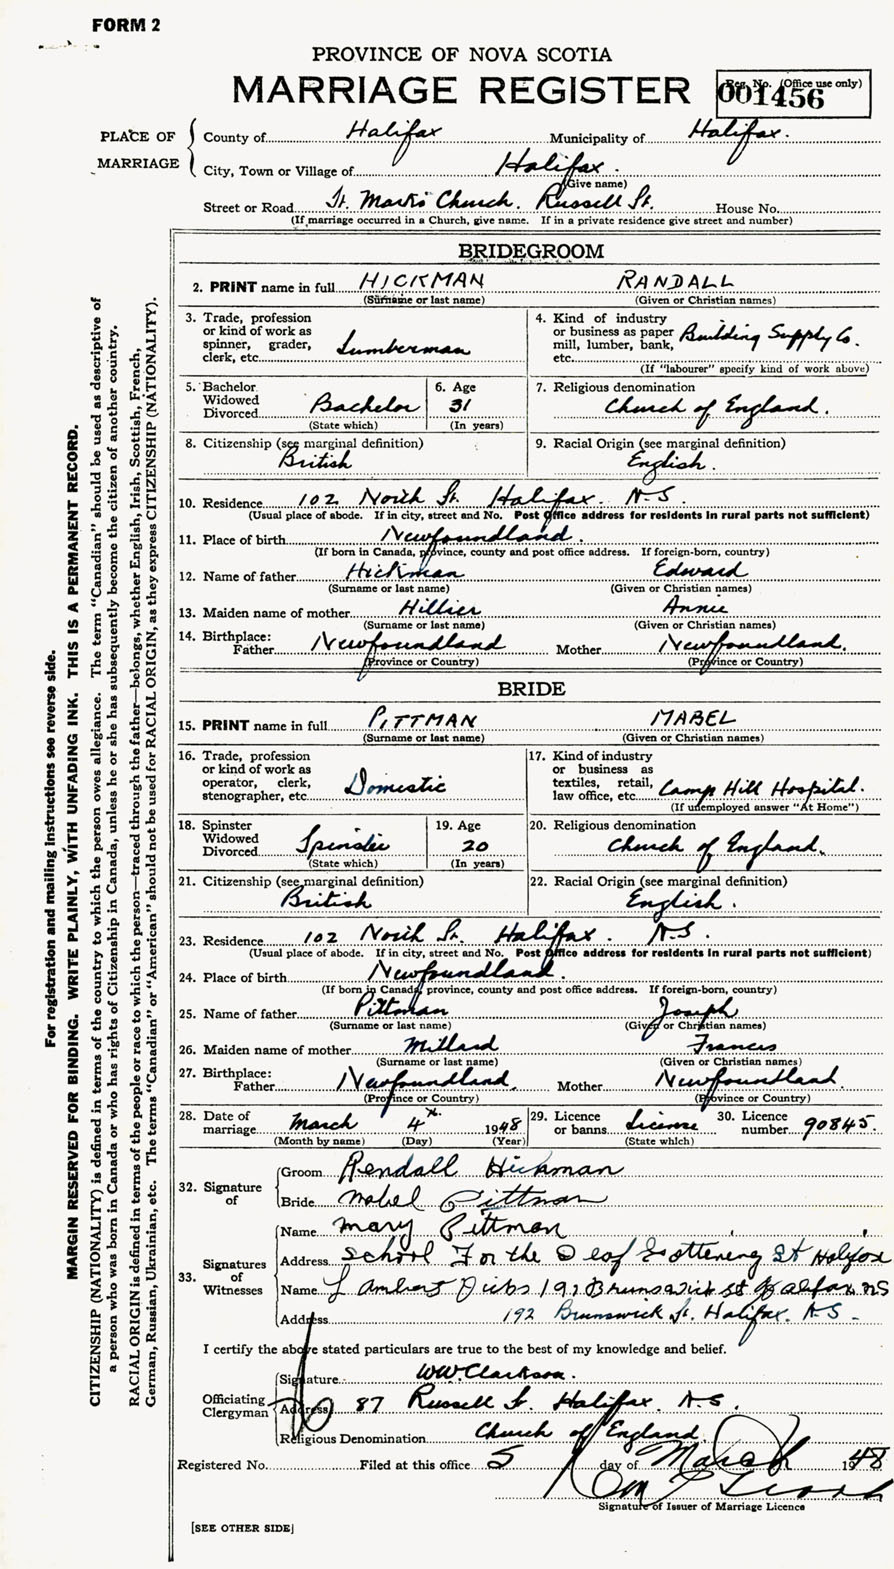 FORM 2
PROVINCE OF NOVA SCOTIA
MARRIAGE REGISTER
Reg. No. (Office use only)
001456
PLACE OF MARRIAGE
County of Halifax Municipality of Halifax.
City, Town or Village of Halifax.
(Give name)
Street or Road St. Mark's Church. Russell St. House No.
(If marriage occurred in a Church, give name. If in a private residence give street and number)
BRIDEGROOM
2. PRINT name in full HICKMAN RANDALL
(Surname or last name) (Given or Christian names)
3. Trade, profession or kind of work as spinner, grader, clerk, etc. Lumberman
4. Kind of industry or business as paper mill, lumber, bank, etc. Building Supply Co.
(If "labourer" specify kind of work above)
5. Bachelor Widowed Divorced Bachelor
(State which)
6. Age 31
(In years)
7. Religious denomination Church of England.
8. Citizenship (see marginal definition) British
9. Racial Origin (see marginal definition) English.
10. Residence 102 North St. Halifax. N.S.
(Usual place of abode. If in city, street and No. Post Office address for residents in rural parts not sufficient)
11. Place of birth Newfoundland.
(If born in Canada, province, county and post office address. If foreign-born, country)
12. Name of father Hickman Edward
(Surname or last name) (Given or Christian names)
13. Maiden name of mother Hillier Annie
(Surname or last name) (Given or Christian names)
14. Birthplace: Father Newfoundland Mother Newfoundland.
(Province or Country) (Province or Country)
BRIDE
15. PRINT name in full PITTMAN MABEL
(Surname or last name) (Given or Christian names)
16. Trade, profession or kind of work as operator, clerk, stenographer, etc. Domestic
17. Kind of industry or business as textiles, retail, law office, etc. Camp Hill Hospital.
(If unemployed answer "At Home")
18. Spinster Widowed Divorced Spinster
(State which)
19. Age 20
(In years)
20. Religious denomination Church of England.
21. Citizenship (see marginal definition) British
22. Racial Origin (see marginal definition) English.
23. Residence 102 North St. Halifax. N.S.
(Usual place of abode. If in city, street and No. Post Office address for residents in rural parts not sufficient)
24. Place of birth Newfoundland.
(If born in Canada, province, county and post office address. If foreign-born, country)
25. Name of father Pittman Joseph
(Surname or last name) (Given or Christian names)
26. Maiden name of mother Millard Francis
(Surname or last name) (Given or Christian names)
27. Birthplace: Father Newfoundland. Mother Newfoundland.
(Province or Country) (Province or Country)
28. Date of marriage March 4th 1948
(Month by name) (Day) (Year)
29. Licence or banns License
(State which)
30. Licence number 90845.
32. Signature of
Groom Rendall Hickman
Bride Mabel Pittman
33. Signatures of Witnesses
Name Mary Pittman
Address School For the Deaf Gottening St Halifax
Name Brunswick st Halifax NS
Address 192 Brunswick St. Halifax. N-S -
I certify the above stated particulars are true to the best of my knowledge and belief.
Officiating Clergyman
Signature W.W. Clarkson.
Address 87 Russell St. Halifax. N.S.
Religious Denomination Church of England.
Registered No. Filed at this office 5 day of March 1948
Signature of Issuer of Marriage Licence
[SEE OTHER SIDE]
For registration and mailing instructions see reverse side.
MARGIN RESERVED FOR BINDING. WRITE PLAINLY, WITH UNFADING INK. THIS IS A PERMANENT RECORD.
CITIZENSHIP (NATIONALITY) is defined in terms of the country to which the person owes allegiance. The term "Canadian" should be used as descriptive of
a person who was born in Canada or who has rights of Citizenship in Canada, unless he or she has subsequently become the citizen of another country.
RACIAL ORIGIN is defined in terms of the people or race to which the person—traced through the father—belongs, whether English, Irish, Scottish, French,
German, Russian, Ukrainian, etc. The terms "Canadian" or "American" should not be used for RACIAL ORIGIN, as they express CITIZENSHIP (NATIONALITY).